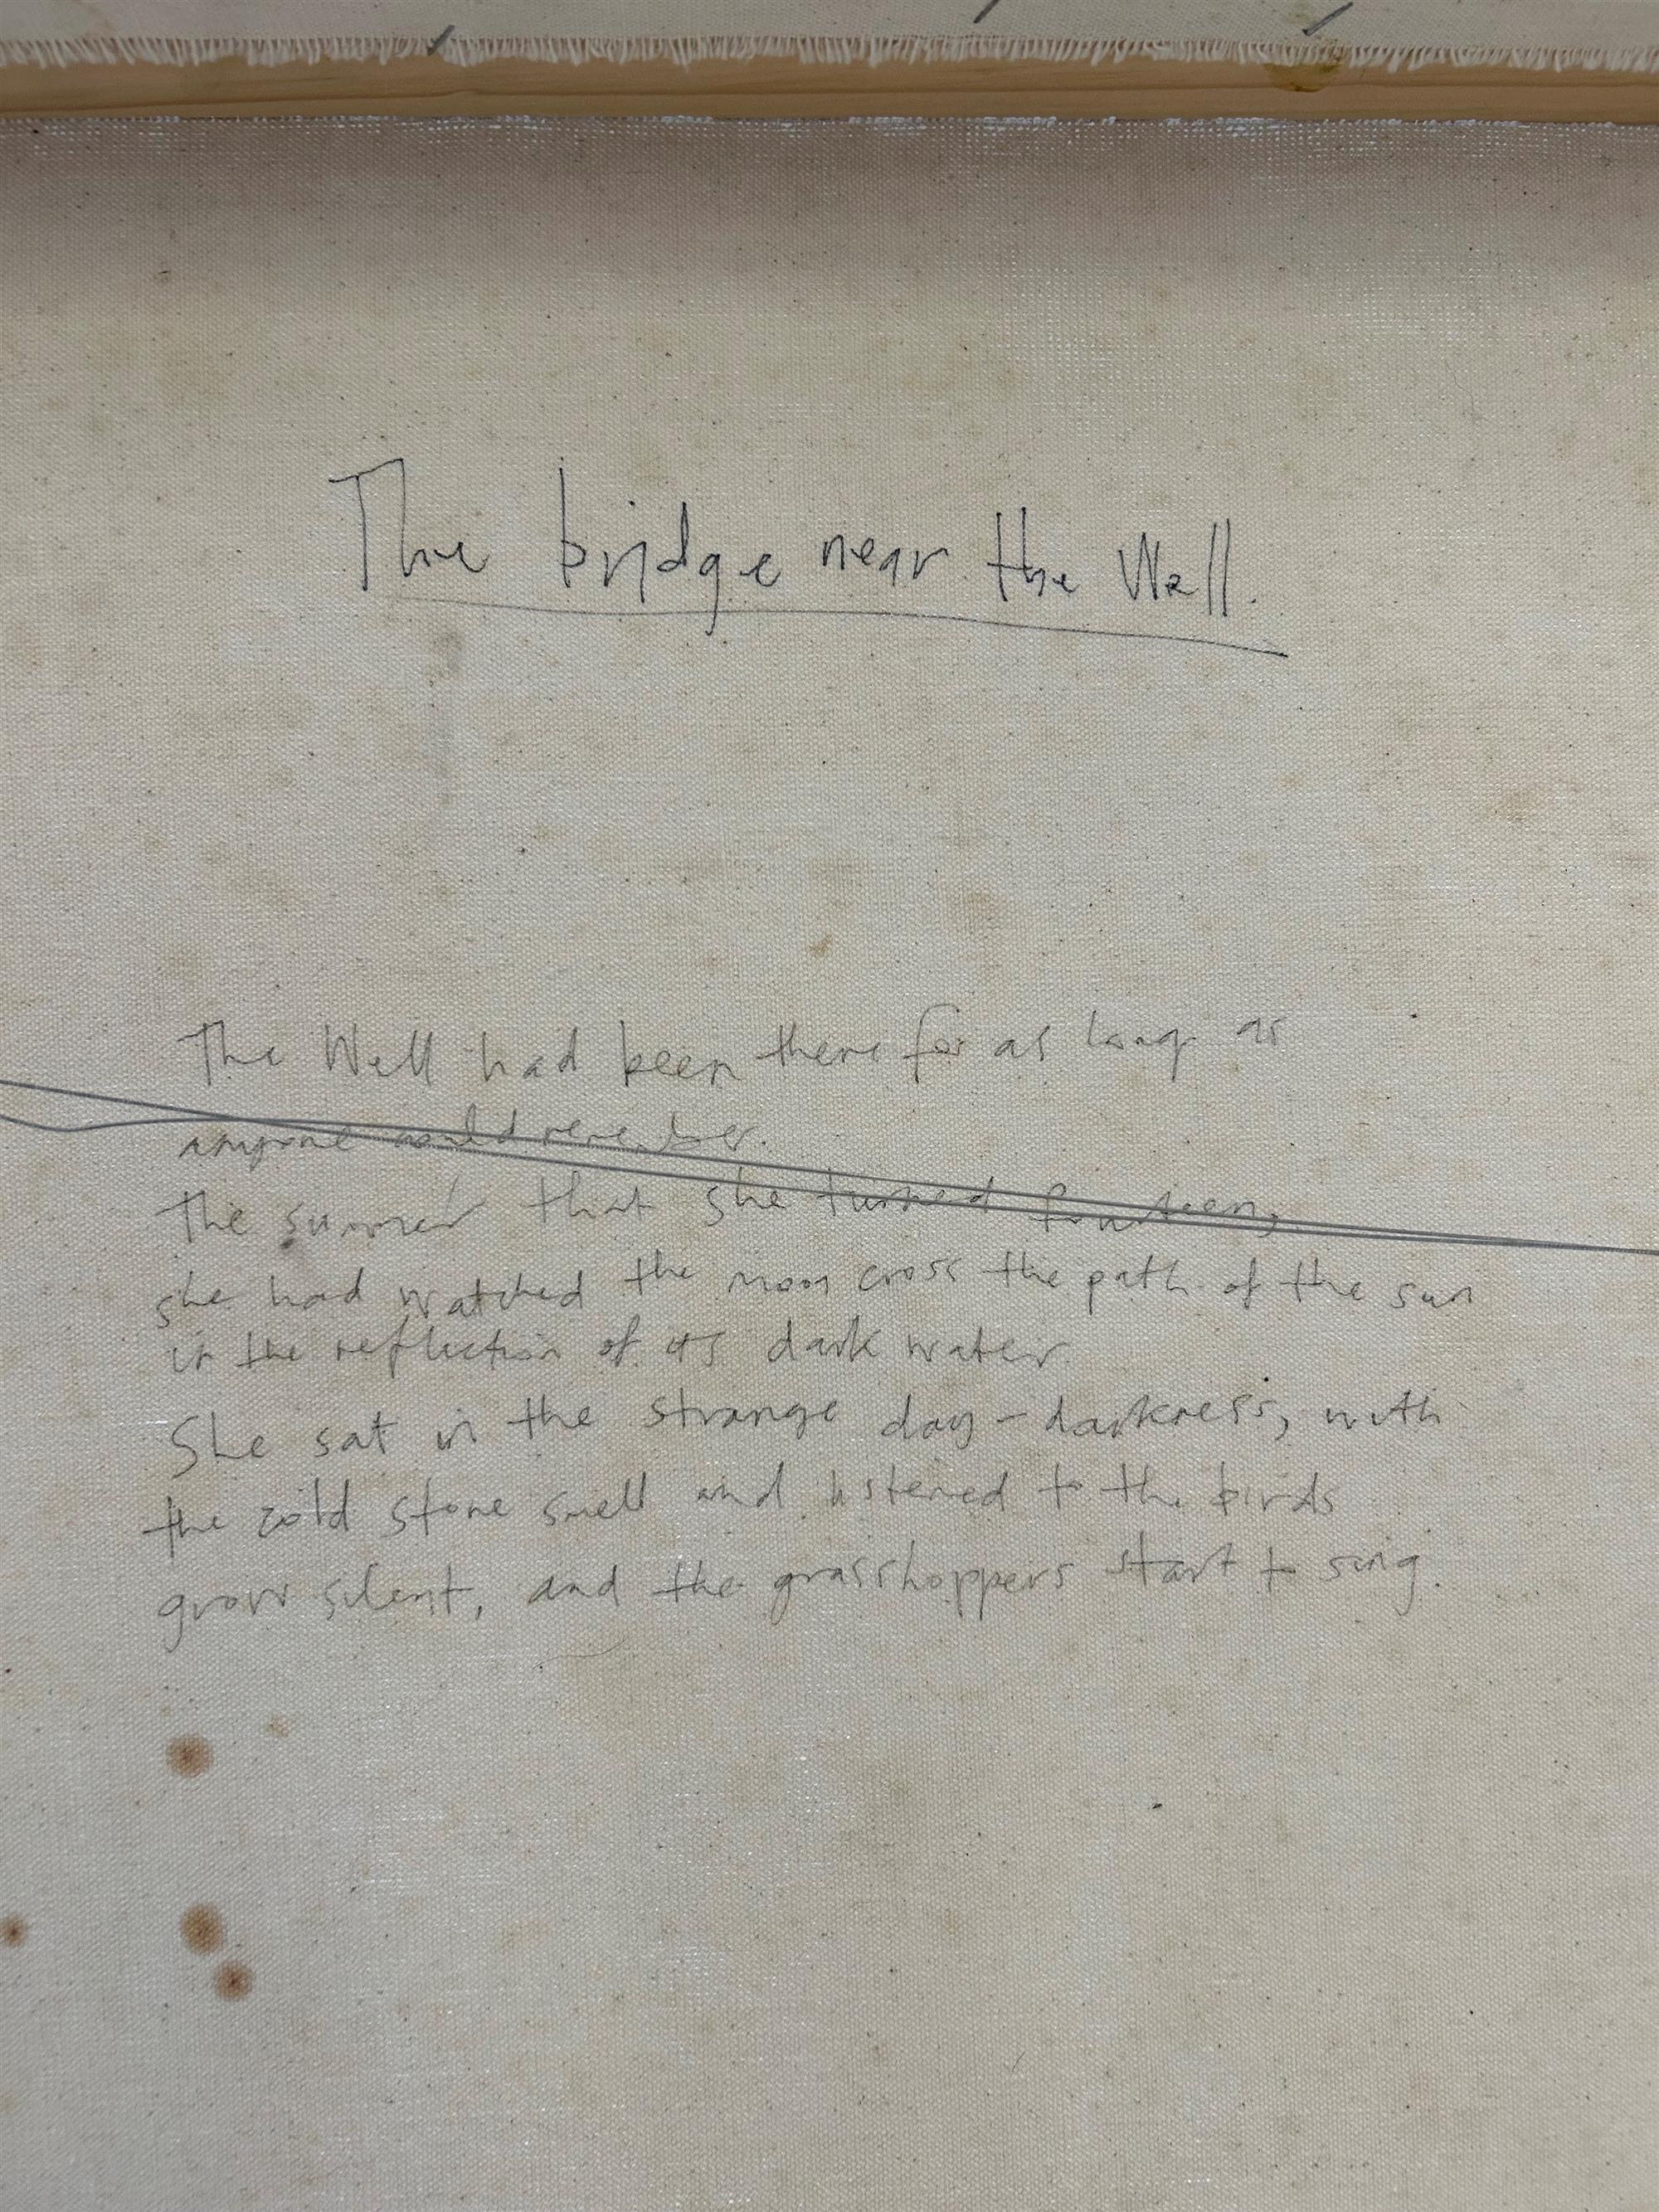 The bridge near the Well.
The Well had been there for as long as
anyone could remember.
The summer that she turned fourteen,
she had watched the moon cross the path of the sun
in the reflection of its dark water.
She sat in the strange day-darkness, with
the cold stone smell and listened to the birds
grow silent, and the grasshoppers start to sing.